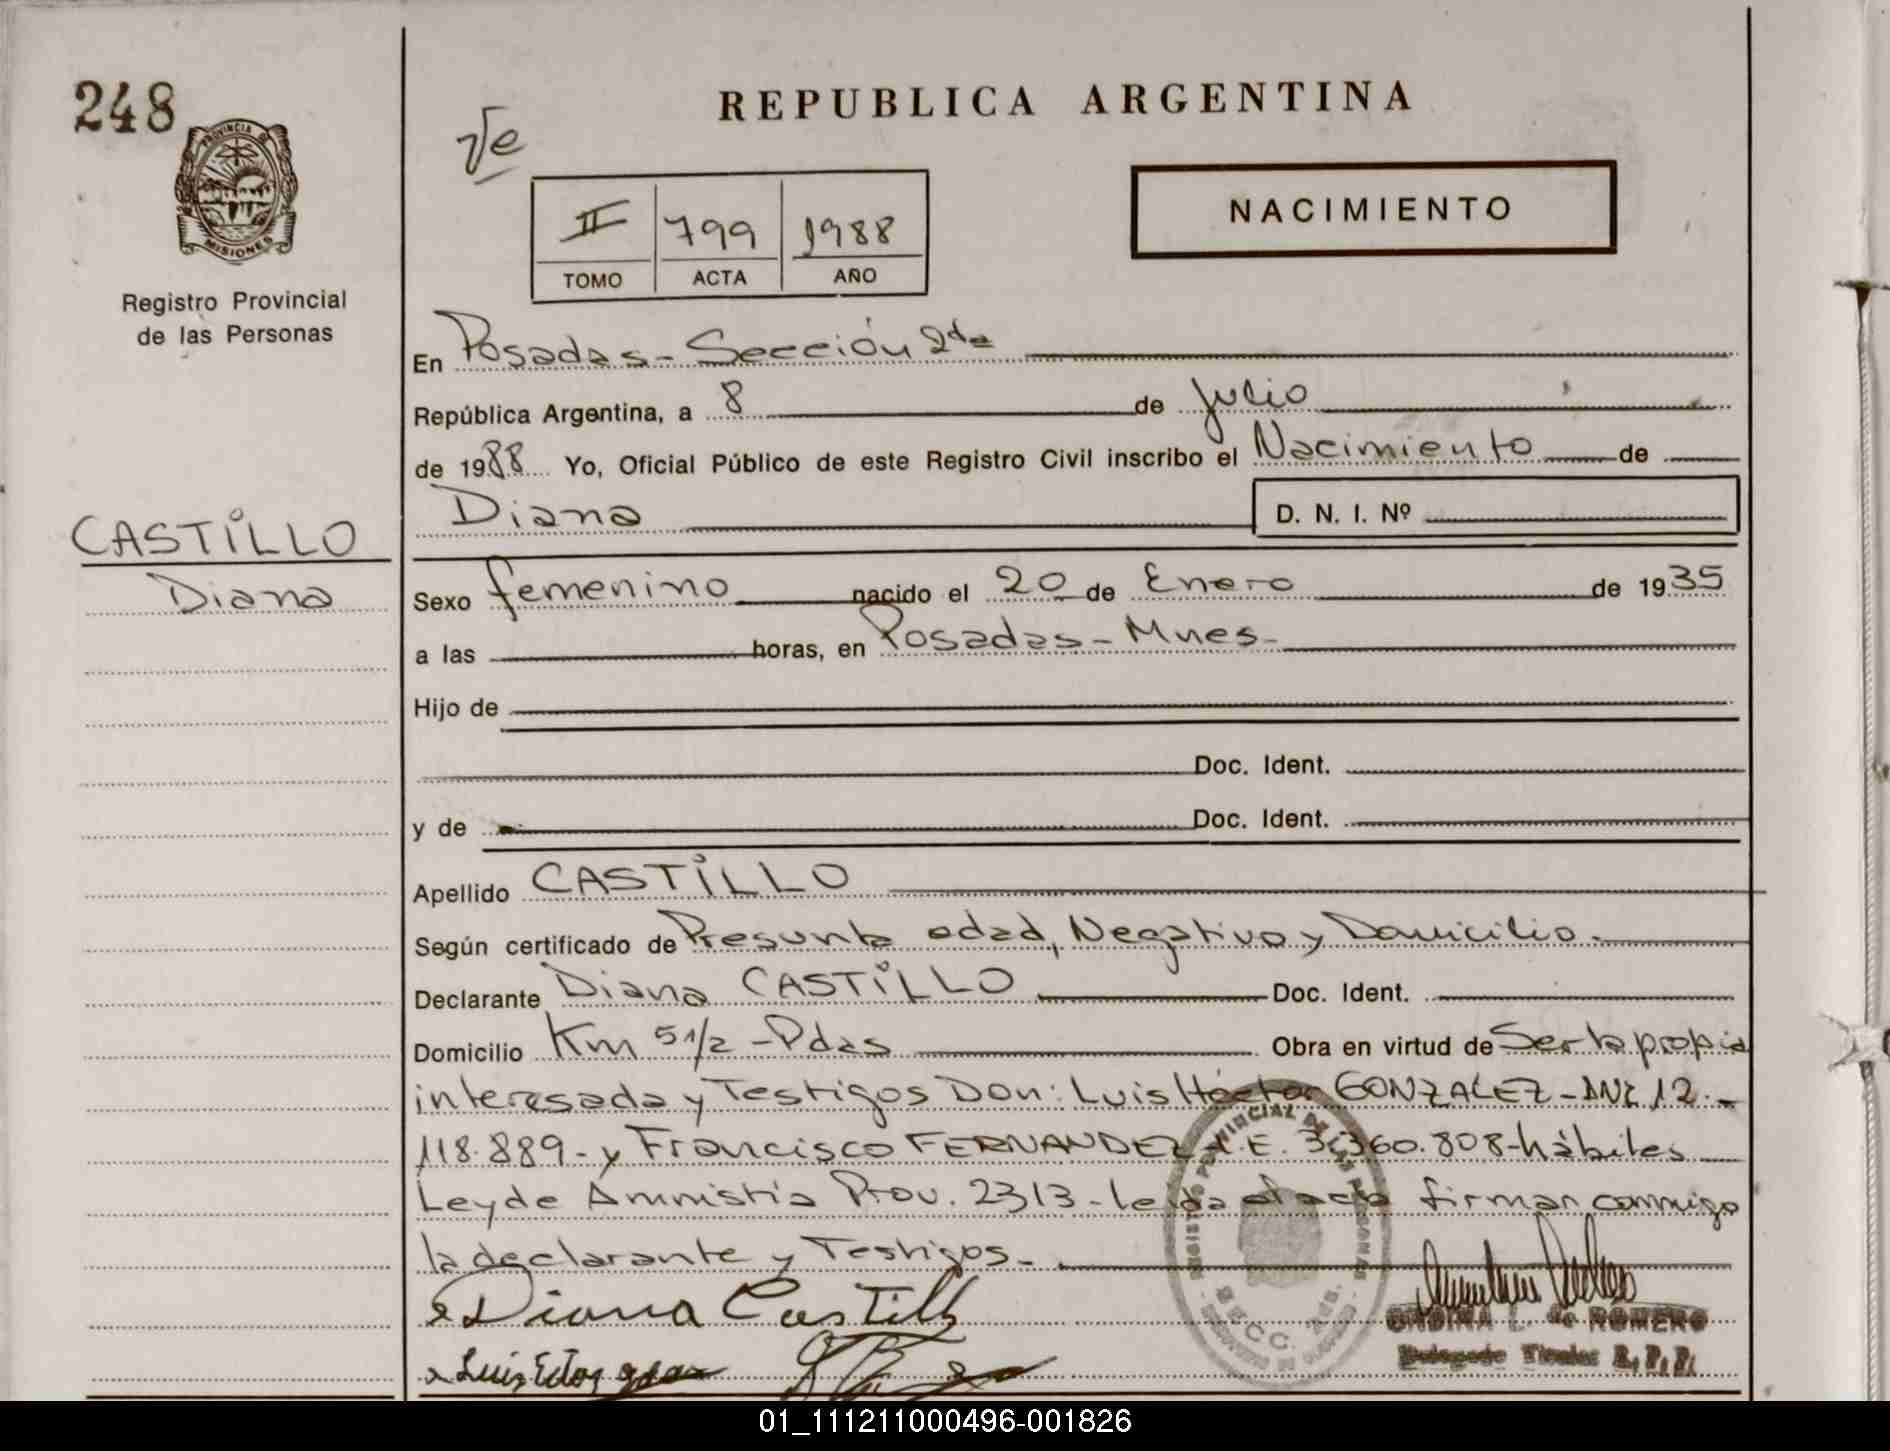 248
PROVINCIA DE
MISIONES
Registro Provincial
de las Personas
CASTILLO
Diana
REPUBLICA ARGENTINA
NACIMIENTO
II 799 1988
TOMO ACTA AÑO
En Posadas - Sección 2da
República Argentina, a 8 de Julio
de 1988 Yo, Oficial Público de este Registro Civil inscribo el Nacimiento de
Diana D. N. I. Nº
Sexo femenino nacido el 20 de Enero de 1935
a las horas, en Posadas - Mnes.
Hijo de
Doc. Ident.
y de Doc. Ident.
Apellido CASTILLO
Según certificado de Presunta edad, Negativo y Domicilio.
Declarante Diana CASTILLO Doc. Ident.
Domicilio Km 5 1/2 - Pdas Obra en virtud de Ser la propia
interesada y Testigos Don: Luis Héctor GONZALEZ - DNI 12.-
118.889.- y Francisco FERNANDEZ L.E. 3.360.808 - hábiles
Ley de Amnistía Prov. 2313 - leida el acta firman conmigo
la declarante y Testigos.-
Diana Castillo
ONDINA L. de ROMERO
Delegado Titular R.P.P.
01_111211000496-001826